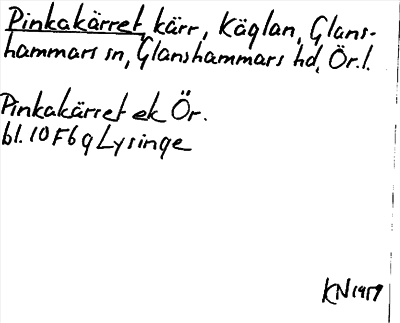 Pinkakärret kärr, Käglan, Glans-
hammars sn, Glanshammars hd, Ör. l.
Pinkakärret ek Ör.
bl. 10 F6 g Lysinge
KN 1959